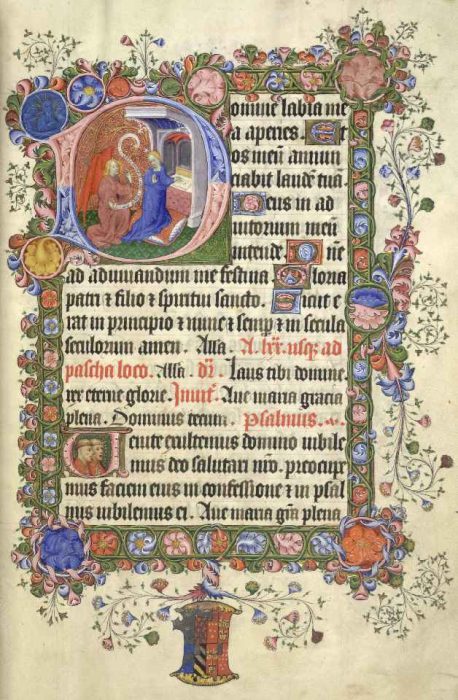 Domine labia me
a aperies. Et
os meū annun
ciabit laudē tuā.
Deus in ad
iutorium meū
intende. Dn̄e
ad adiuvandum me festina. Gloria
patri ⁊ filio ⁊ spiritui sancto. Sicut e
rat in principio ⁊ nunc ⁊ semꝑ ⁊ in secula
seculorum amen. Alla. A. lxx. usqꝫ ad
pascha loco. Alla. dr̄. Laus tibi domine
rex eterne glorie. Inuit̄. Aue maria gracia
plena. Dominus tecum. Psalmus.
Uenite exultemus domino iubile
mus deo salutari nr̄o. preocup
mus faciem eius in confessione ⁊ in psal
mis iubilemus ei. Aue maria gr̄a plena